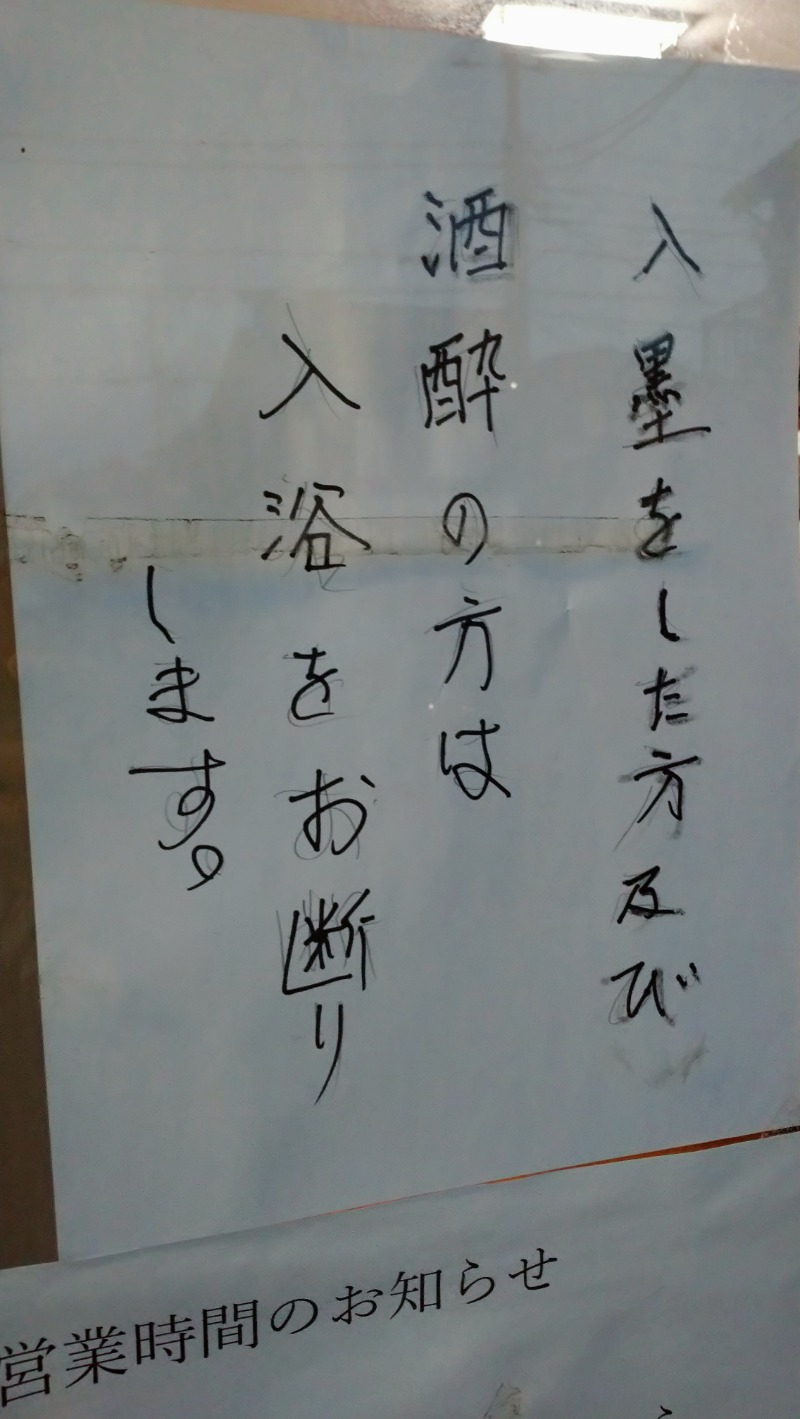 入墨をした方及び
酒酔の方は
入浴をお断り
します。
営業時間のお知らせ